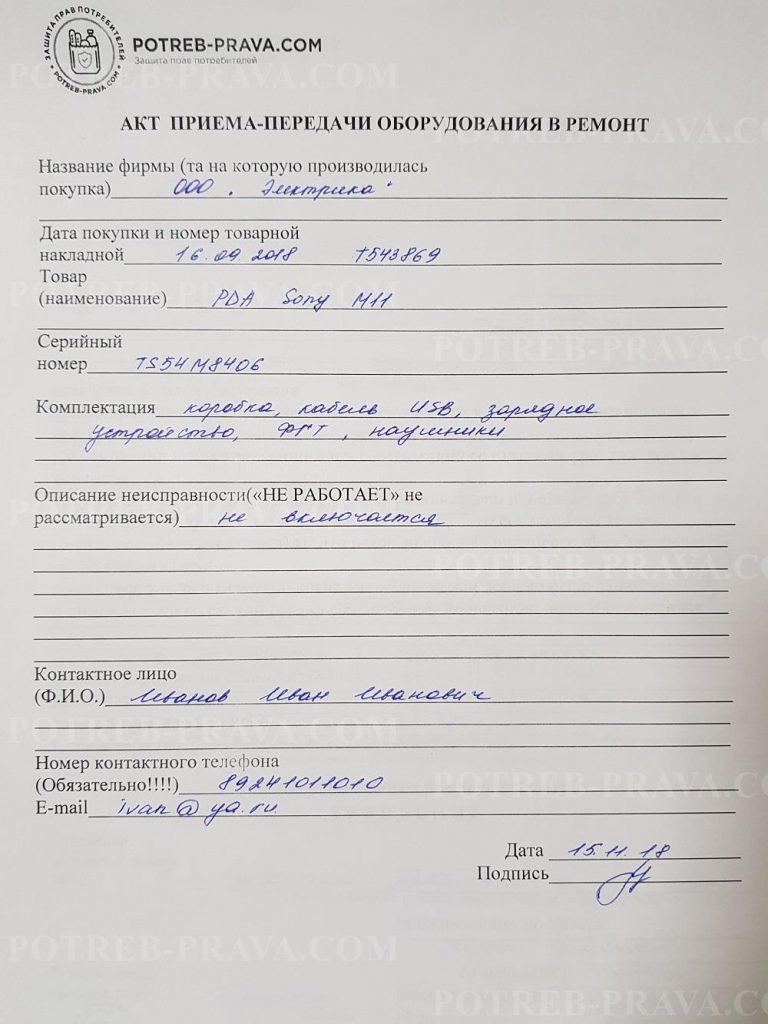 ЗАЩИТА ПРАВ ПОТРЕБИТЕЛЕЙ
POTREB-PRAVA.COM
POTREB-PRAVA.COM
Защита прав потребителей
АКТ ПРИЕМА-ПЕРЕДАЧИ ОБОРУДОВАНИЯ В РЕМОНТ
Название фирмы (та на которую производилась
покупка) ООО "Электрика"
Дата покупки и номер товарной
накладной 16.09.2018 Т543869
Товар
(наименование) PDA Sony M11
Серийный
номер TS54M8406
Комплектация коробка, кабель USB, зарядное
устройство, ФГТ, наушники
Описание неисправности(«НЕ РАБОТАЕТ» не
рассматривается) не включается
Контактное лицо
(Ф.И.О.) Иванов Иван Иванович
Номер контактного телефона
(Обязательно!!!!) 89241011010
E-mail ivan@ya.ru
Дата 15.11.18
Подпись